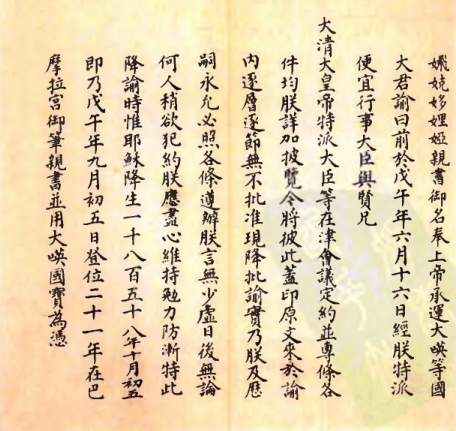 姼娌婭親書御名奉上帝承運大㖤等國
大君諭曰前於戊午年六月十六日經朕特派
便宜行事大臣與賢兄
大清大皇帝特派大臣等在津會議定約並專條各
件均朕詳加披覽今將彼此蓋印原文來於諭
内逐層逐節無不批准現降批諭實乃朕及歷
嗣永允必照各條遵辦朕言無少虛日後無論
何人稍欲犯約朕應盡心維持勉力防漸特此
降諭時惟耶穌降生一千八百五十八年十月初五
即乃戊午年九月初五日登位二十一年在巴
摩拉宮御筆親書並用大㖤國寶為憑